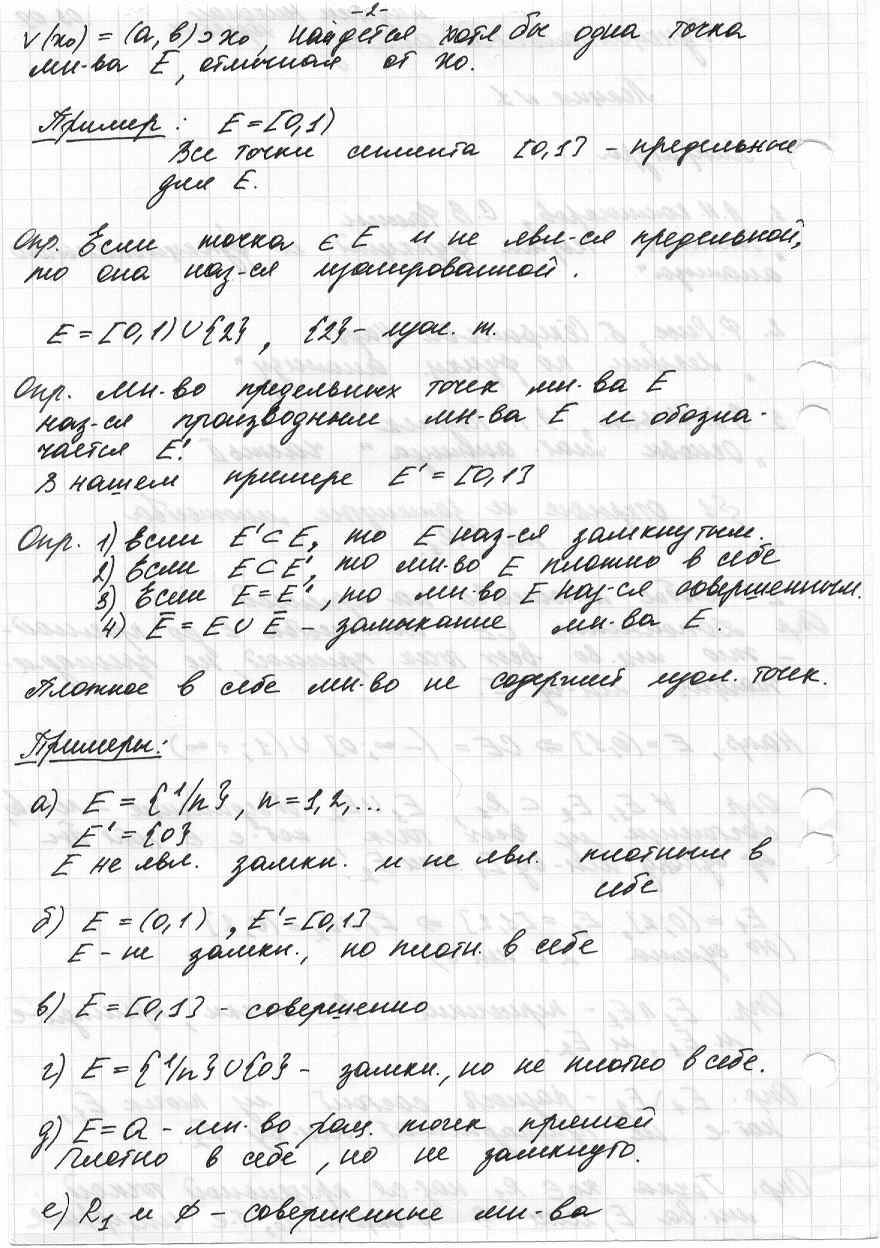 -2-
V(x₀) = (a, b)∋x₀, найдется хотя бы одна точка
мн-ва E, отличная от x₀.
Пример: E = [0,1)
Все точки сегмента [0,1] - предельные
для E.
Опр. Если точка ∈ E и не явл-ся предельной,
то она наз-ся изолированной.
E = [0,1)∪{2}, {2} - изол. т.
Опр. Мн-во предельных точек мн-ва E
наз-ся производным мн-ва E и обозна-
чается E'.
В нашем примере E' = [0,1]
Опр. 1) Если E'⊂E, то E наз-ся замкнутым.
2) Если E⊂E', то мн-во E плотно в себе
3) Если E=E', то мн-во E наз-ся совершенным.
4) E̅ = E∪E̅ - замыкание мн-ва E.
Плотное в себе мн-во не содержит изол. точек.
Примеры:
а) E = {1/n}, n=1,2,...
E' = {0}
E не явл. замкн. и не явл. плотным в
себе
б) E = (0,1), E'=[0,1]
E - не замкн., но плотн. в себе
в) E=[0,1] - совершенно
г) E={1/n}∪{0} - замкн., но не плотно в себе.
д) E=Q - мн-во рац. точек прямой
Плотно в себе, но не замкнуто.
е) R₁ и ∅ - совершенные мн-ва